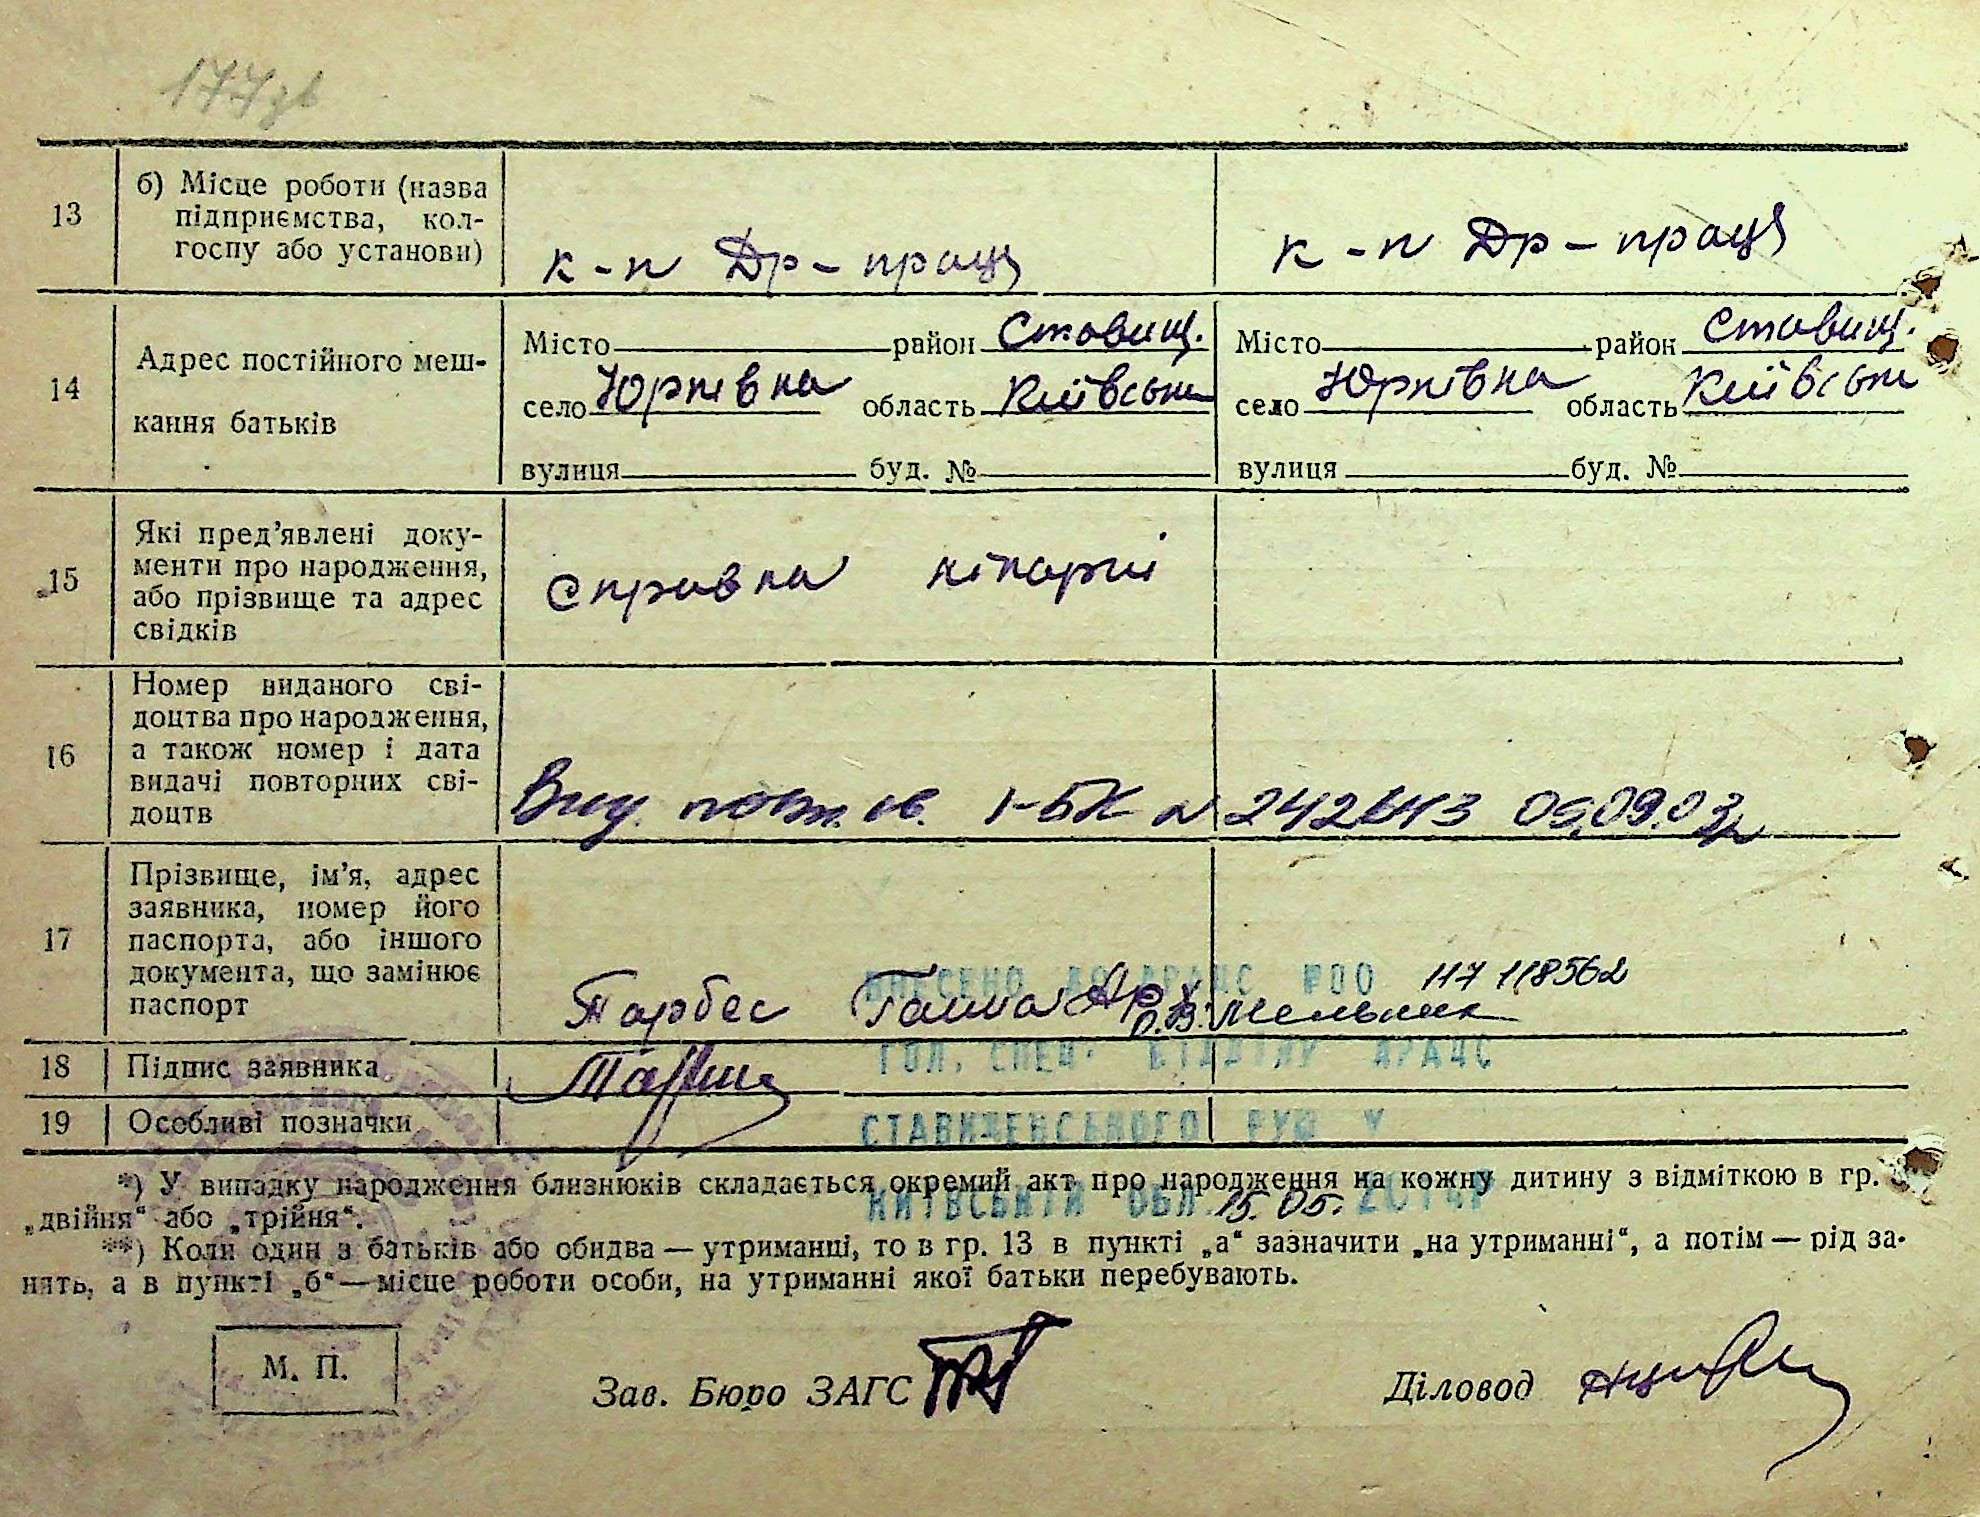 177зв
13 б) Місце роботи (назва підприємства, кол-
госпу або установи)
к-п Др-праці к-п Др-праці
14 Адрес постійного меш-
кання батьків
Місто район Ставищ. Місто район Ставищ.
село Юрківка область Київськ село Юрківка область Київськ
вулиця буд. № вулиця буд. №
15 Які пред’явлені доку-
менти про народження,
або прізвище та адрес
свідків
Справка лікарні
16 Номер виданого сві-
доцтва про народження,
а також номер і дата
видачі повторних сві-
доцтв
Вид. повт. св. 1-БК № 242643 05.09.03р
17 Прізвище, ім’я, адрес
заявника, номер його
паспорта, або іншого
документа, що замінює
паспорт
Тарбес Ганна
ВНЕСЕНО ДО ДРАЦС 00 117 118562
О.В. Мельник
18 Підпис заявника
ГОЛ. СПЕЦ. ВІДДІЛУ ДРАЦС
19 Особливі позначки
СТАВИЩЕНСЬКОГО РУЮ У
*) У випадку народження близнюків складається окремий акт про народження на кожну дитину з відміткою в гр.
„двійня“ або „трійня“.
КИЇВСЬКІЙ ОБЛ. 15.05.2014Р
**) Коли один з батьків або обидва — утриманці, то в гр. 13 в пункті „а“ зазначити „на утриманні“, а потім — рід за-
нять, а в пункті „б“ — місце роботи особи, на утриманні якої батьки перебувають.
М. П.
Зав. Бюро ЗАГС Діловод